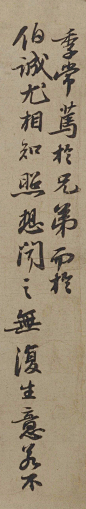 季常篤於兄弟而於
伯誠尤相知照想聞之無復生意若不